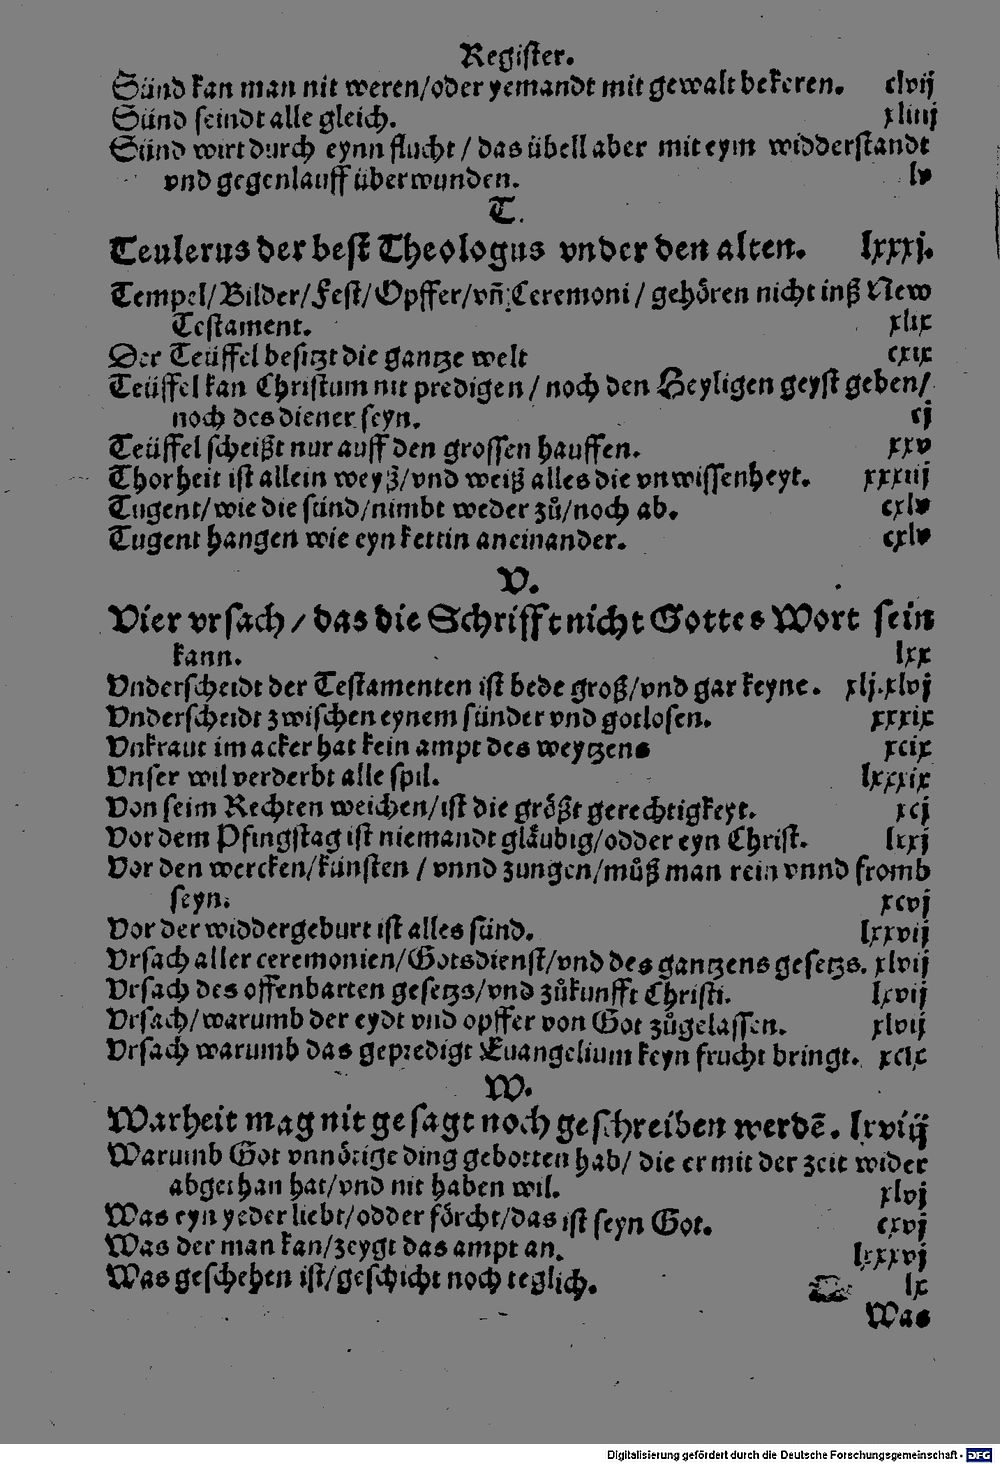 Register.
Sünd kan man nit weren/oder yemandt mit gewalt bekeren. clvij
Sünd seindt alle gleich. xliiij
Sünd wirt durch eynn flucht / das übell aber mit eym widderstandt
vnd gegenlauff überwunden. lv
T.
Teulerus der best Theologus vnder den alten. lxxxj.
Tempel/Bilder/Fest/Opffer/vñ Ceremoni / gehören nicht inß New
Testament. xlix
Der Teüffel besitzt die gantze welt cxix
Teüffel kan Christum nit predigen / noch den Heyligen geyst geben/
noch des diener seyn. cj
Teüffel scheißt nur auff den grossen hauffen. xxv
Thorheit ist allein weyß/vnd weiß alles die vnwissenheyt. xxxiij
Tugent/wie die sünd/nimbt weder zů/noch ab. cxlv
Tugent hangen wie eyn kettin aneinander. cxlv
V.
Vier vrsach / das die Schrifft nicht Gottes Wort sein
kann. lxx
Vnderscheidt der Testamenten ist bede groß/vnd gar keyne. xlj.xlvj
Vnderscheidt zwischen eynem sünder vnd gotlosen. xxxix
Vnkraut im acker hat kein ampt des weytzens xcix
Vnser wil verderbt alle spil. lxxxix
Von seim Rechten weichen/ist die größt gerechtigkeyt. xcj
Vor dem Pfingstag ist niemandt gläubig/odder eyn Christ. lxxj
Vor den wercken/künsten / vnnd zungen/můß man rein vnnd fromb
seyn. xcvj
Vor der widdergeburt ist alles sünd. lxxvij
Vrsach aller ceremonien/Gotsdienst/vnd des gantzens gesetzs. xlvij
Vrsach des offenbarten gesetzs/vnd zůkunfft Christi. lxvij
Vrsach/warumb der eydt vnd opffer von Got zůgelassen. xlvij
Vrsach warumb das gepredigt Euangelium keyn frucht bringt. xcix
W.
Warheit mag nit gesagt noch geschreiben werdē. lxviij
Warumb Got vnnötige ding gebotten hab/ die er mit der zeit wider
abgethan hat/vnd nit haben wil. xlvj
Was eyn yeder liebt/odder förcht/das ist seyn Got. cxvj
Was der man kan/zeygt das ampt an. lxxxvj
Was geschehen ist/geschicht noch teglich. lx
Was
Digitalisierung gefördert durch die Deutsche Forschungsgemeinschaft - DFG